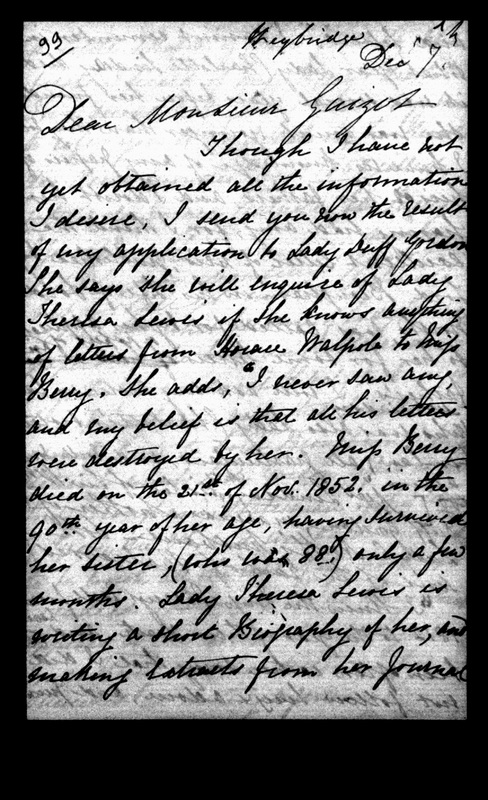 99
Weybridge
Dec 7th
Dear Monsieur Guizot
Though I have not
yet obtained all the information
I desire, I send you now the result
of my application to Lady Duff Gordon
She says she will enquire of Lady
Theresa Lewis if she knows anything
of letters from Horace Walpole to Miss
Berry. She adds, "I never saw any,
and my belief is that all his letters
were destroyed by her. Miss Berry
died on the 21st of Nov. 1852. in the
90th year of her age, having survived
her sister, (who was 88,) only a few
months. Lady Theresa Lewis is
writing a short Biography of her, and
making extracts from her Journal